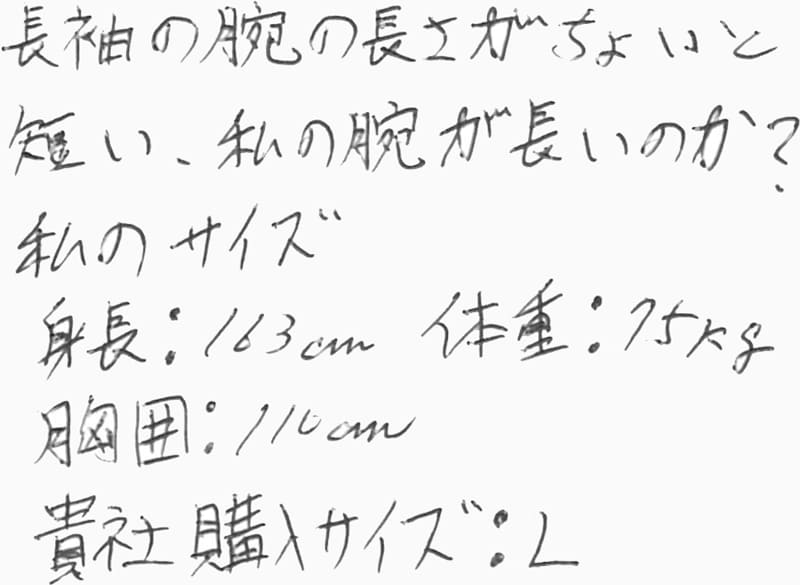 長袖の腕の長さがちょいと
短い、私の腕が長いのか?
私のサイズ
身長:163cm 体重:75kg
胸囲:110cm
貴社購入サイズ:L